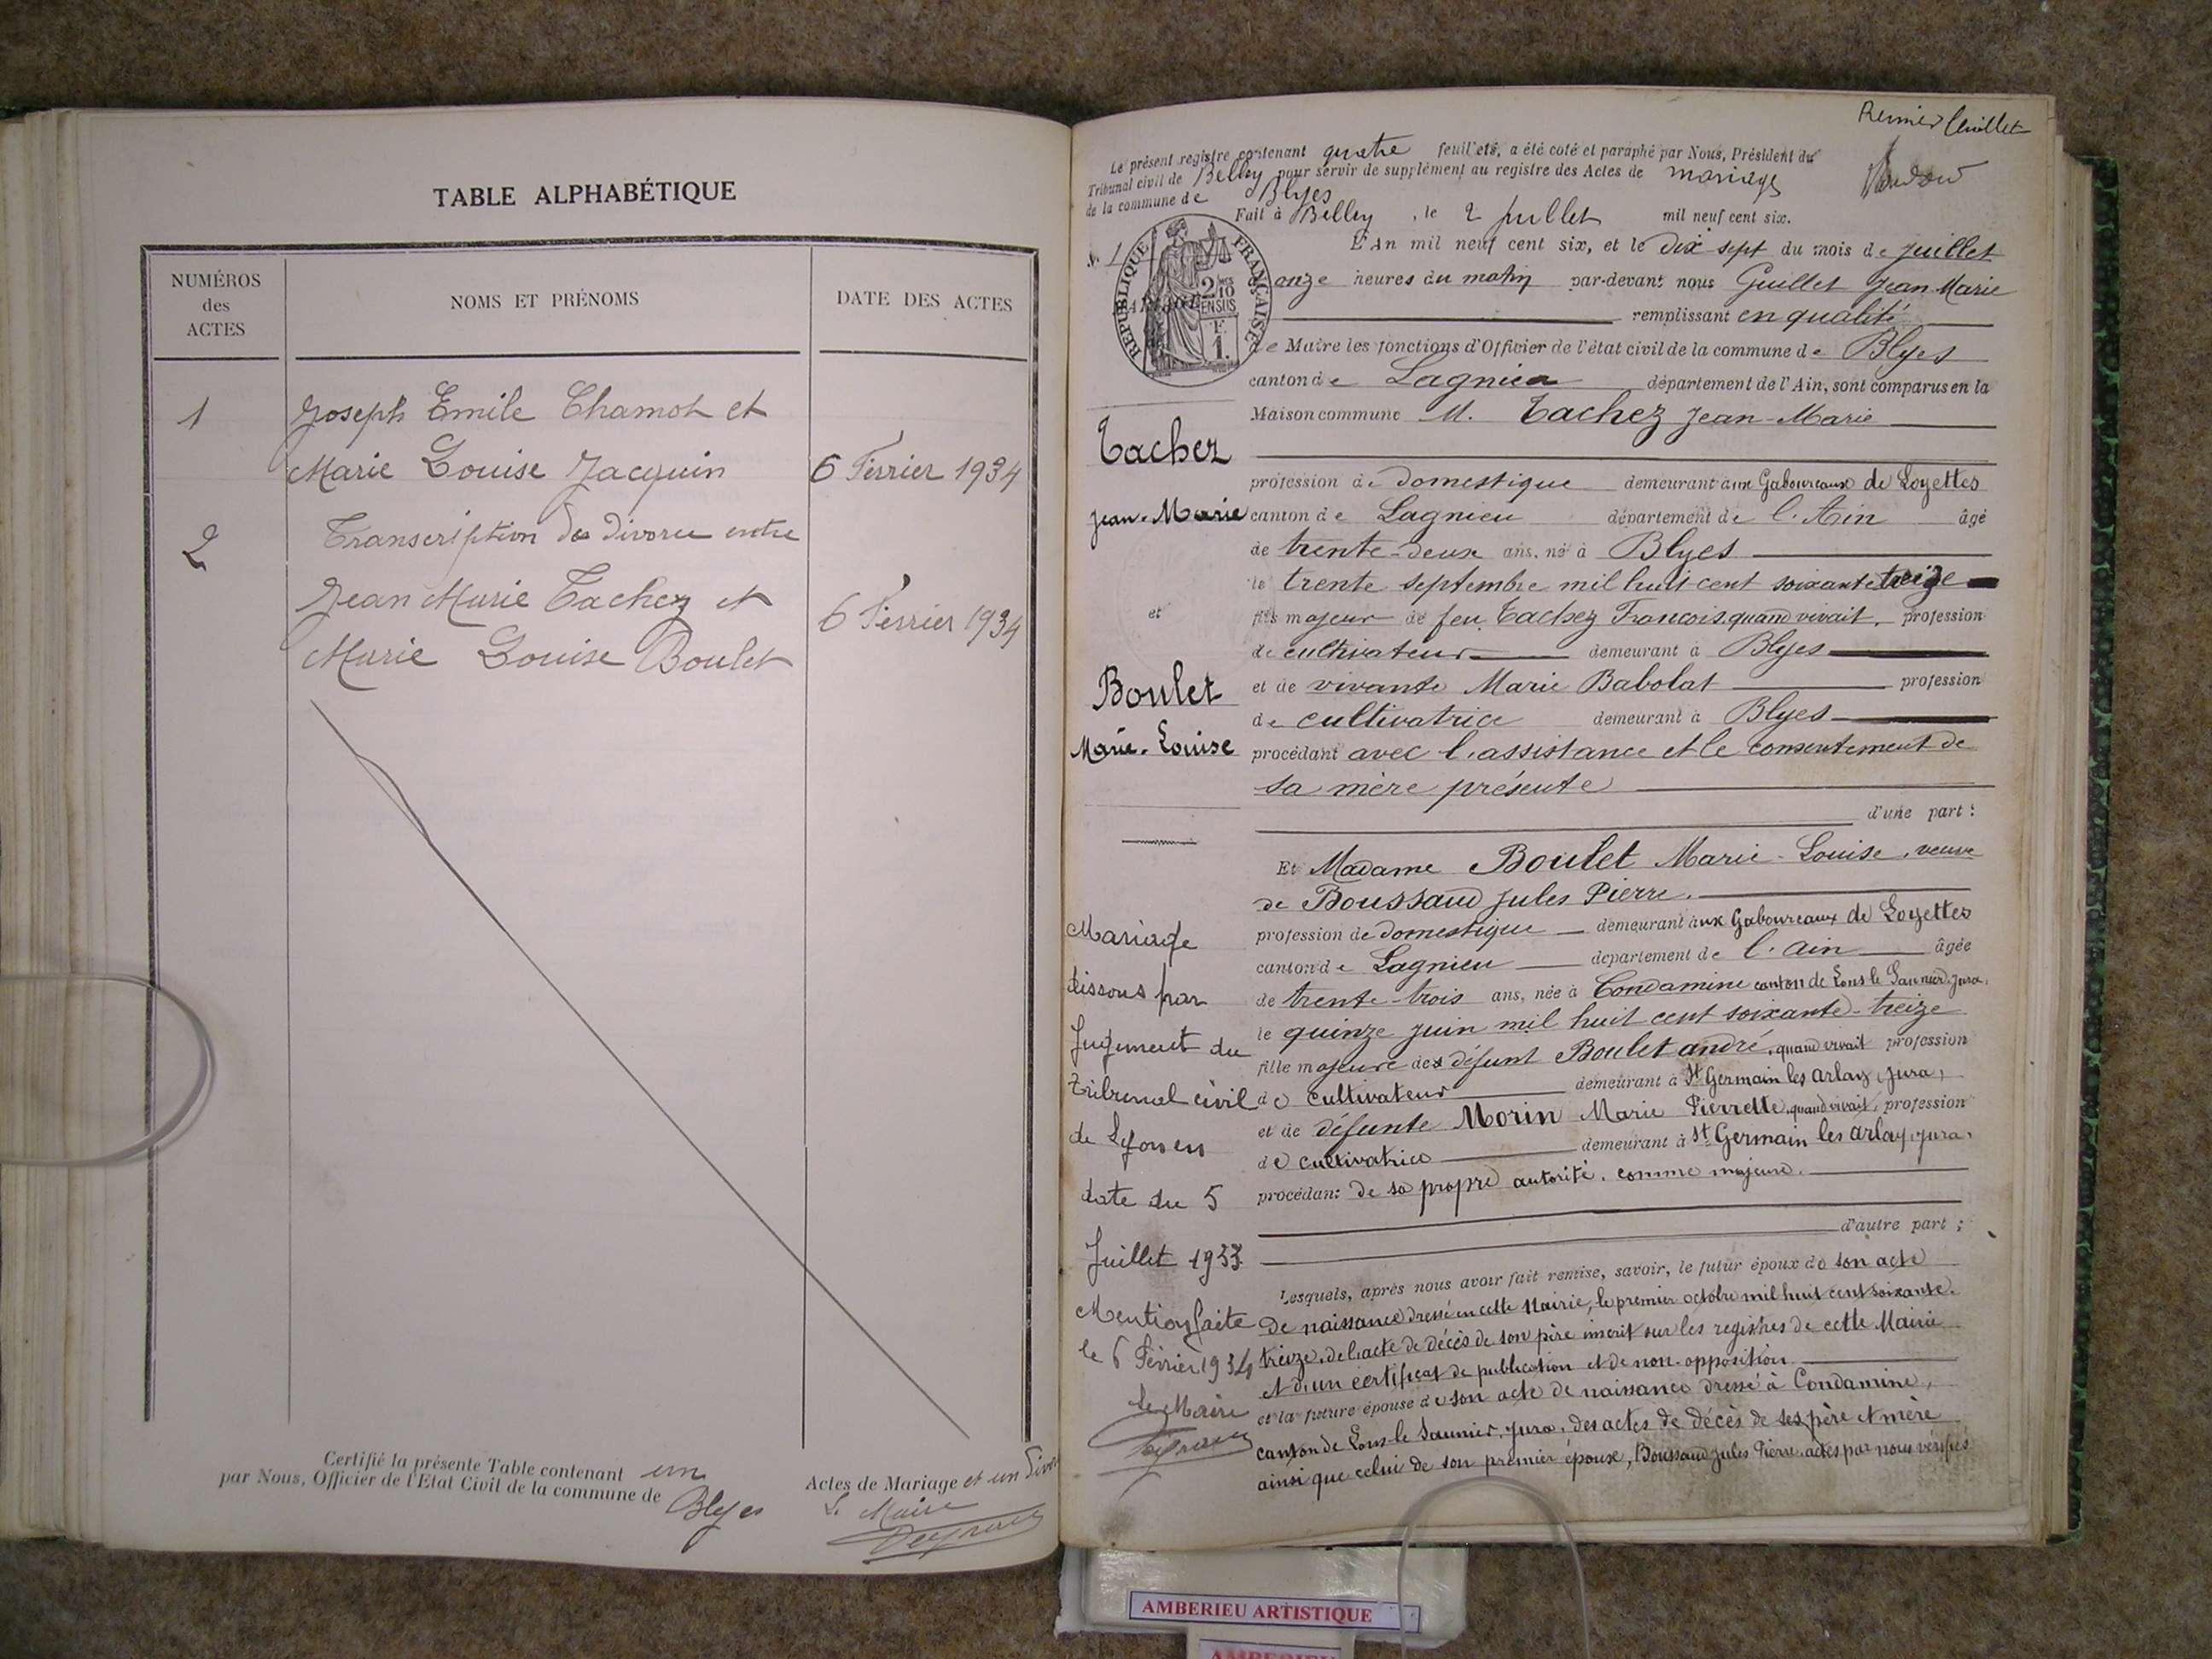 TABLE ALPHABÉTIQUE
NUMÉROS
des
ACTES
NOMS ET PRÉNOMS
DATE DES ACTES
1
Joseph Emile Chamot et
Marie Louise Jacquin
6 Février 1934
2
Transcription de divorce entre
Jean Marie Tachez et
Marie Louise Boulet
6 Février 1934
Certifié la présente Table contenant un Actes de Mariage et un
par Nous, Officier de l'Etat Civil de la commune de Blyes
Le Maire
Premier feuillet
Le présent registre contenant quatre feuillets, a été coté et paraphé par Nous, Président du
Tribunal civil de Belley pour servir de supplément au registre des Actes de mariages
de la commune de Blyes
Fait à Belley, le 2 juillet mil neuf cent six.
RÉPUBLIQUE FRANÇAISE
2/10
EN SUS
1 F.
N. 1
L'An mil neuf cent six, et le dix sept du mois de juillet
à onze heures du matin par-devant nous Guillet Jean Marie
remplissant en qualité
de Maire les fonctions d'Officier de l'état civil de la commune de Blyes
canton de Lagnieu département de l'Ain, sont comparus en la
Maison commune M. Tachez Jean-Marie
profession de domestique demeurant aux Gaboureaux de Loyettes
canton de Lagnieu département de l'Ain âgé
de trente-deux ans, né à Blyes
le trente septembre mil huit cent soixante treize
fils majeur de feu Tachez François quand vivait, profession
de cultivateur demeurant à Blyes
et de vivante Marie Babolat profession
de cultivatrice demeurant à Blyes
procédant avec l'assistance et le consentement de
sa mère présente
d'une part :
Et Madame Boulet Marie-Louise, veuve
de Boussaud Jules Pierre.
profession de domestique demeurant aux Gaboureaux de Loyettes
canton de Lagnieu département de l'Ain âgée
de trente-trois ans, née à Condamine canton de Lons le Saunier, Jura,
le quinze juin mil huit cent soixante-treize
fille majeure des défunt Boulet André, quand vivait profession
de cultivateur demeurant à St Germain les Arlay, Jura,
et de défunte Morin Marie Pierrette, quand vivait, profession
de cultivatrice demeurant à St Germain les Arlay, Jura,
procédant de sa propre autorité, comme majeure.
d'autre part ;
Lesquels, après nous avoir fait remise, savoir, le futur époux de son acte
de naissance dressé en cette Mairie, le premier octobre mil huit cent soixante-
treize, de l'acte de décès de son père inscrit sur les registres de cette Mairie
et d'un certificat de publication et de non-opposition
et la future épouse de son acte de naissance dressé à Condamine,
canton de Lons-le Saunier, Jura, des actes de décès de ses père et mère
ainsi que celui de son premier époux, Boussaud Jules Pierre, actes par nous vérifiés
Tachez
Jean-Marie
et
Boulet
Marie-Louise
Mariage
dissous par
Jugement du
tribunal civil
de Lyon en
date du 5
Juillet 1933
Mention faite
le 6 Février 1934
Le Maire
AMBERIEU ARTISTIQUE
AMBERIEU